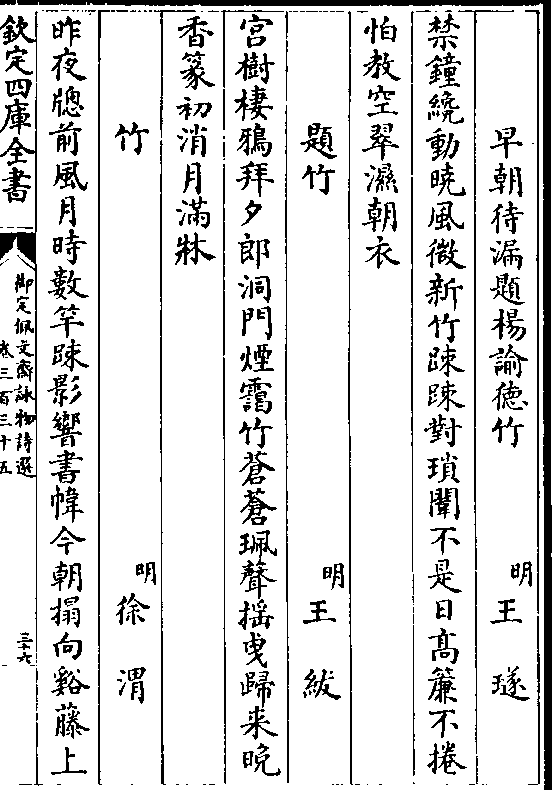 早朝待漏題楊諭德竹 明 王 璲
禁鐘繞動曉風微新竹疎疎對瑣闈不是日髙簾不捲
怕教空翠濕朝衣
題竹 明 王 紱
宮樹棲鴉拜夕郎洞門煙靄竹蒼蒼珮聲揺曵歸来晩
香篆初消月滿牀
竹 明 徐 渭
昨夜牕前風月時數竿踈影響書幃今朝搨向谿藤上
欽定四庫全書
御定佩文齋詠物詩選
卷三百三十五
三十六